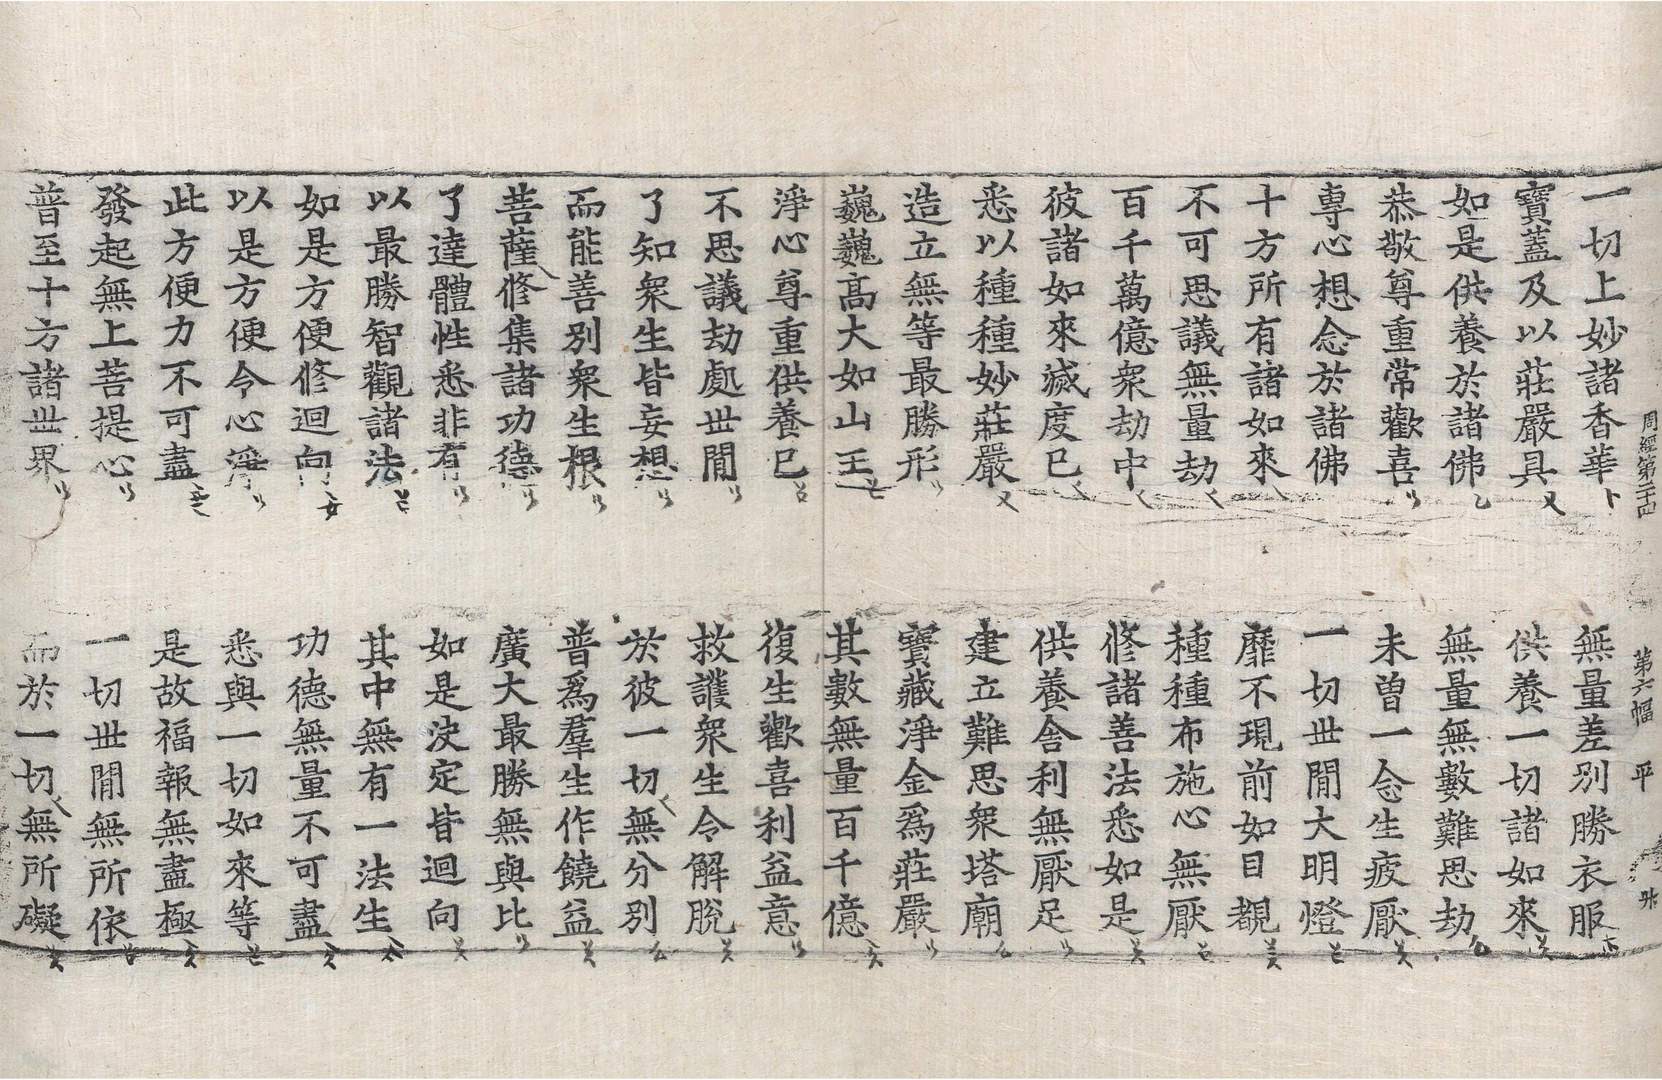 周經第二十四　第六幅　平
一切上妙諸香華　無量差別勝衣服
寶蓋及以莊嚴具　供養一切諸如來
如是供養於諸佛　無量無數難思劫
恭敬尊重常歡喜　未曾一念生疲厭
專心想念於諸佛　一切世閒大明燈
十方所有諸如來　靡不現前如目覩
不可思議無量劫　種種布施心無厭
百千萬億衆劫中　修諸善法悉如是
彼諸如來滅度已　供養舍利無厭足
悉以種種妙莊嚴　建立難思衆塔廟
造立無等最勝形　寶藏淨金爲莊嚴
巍巍高大如山王　其數無量百千億
淨心尊重供養已　復生歡喜利益意
不思議劫處世閒　救護衆生令解脫
了知衆生皆妄想　於彼一切無分別
而能善別衆生根　普爲羣生作饒益
菩薩修集諸功德　廣大最勝無與比
了達體性悉非有　如是決定皆迴向
以最勝智觀諸法　其中無有一法生
如是方便修迴向　功德無量不可盡
以是方便令心淨　悉與一切如來等
此方便力不可盡　是故福報無盡極
發起無上菩提心　一切世閒無所依
普至十方諸世界　而於一切無所礙